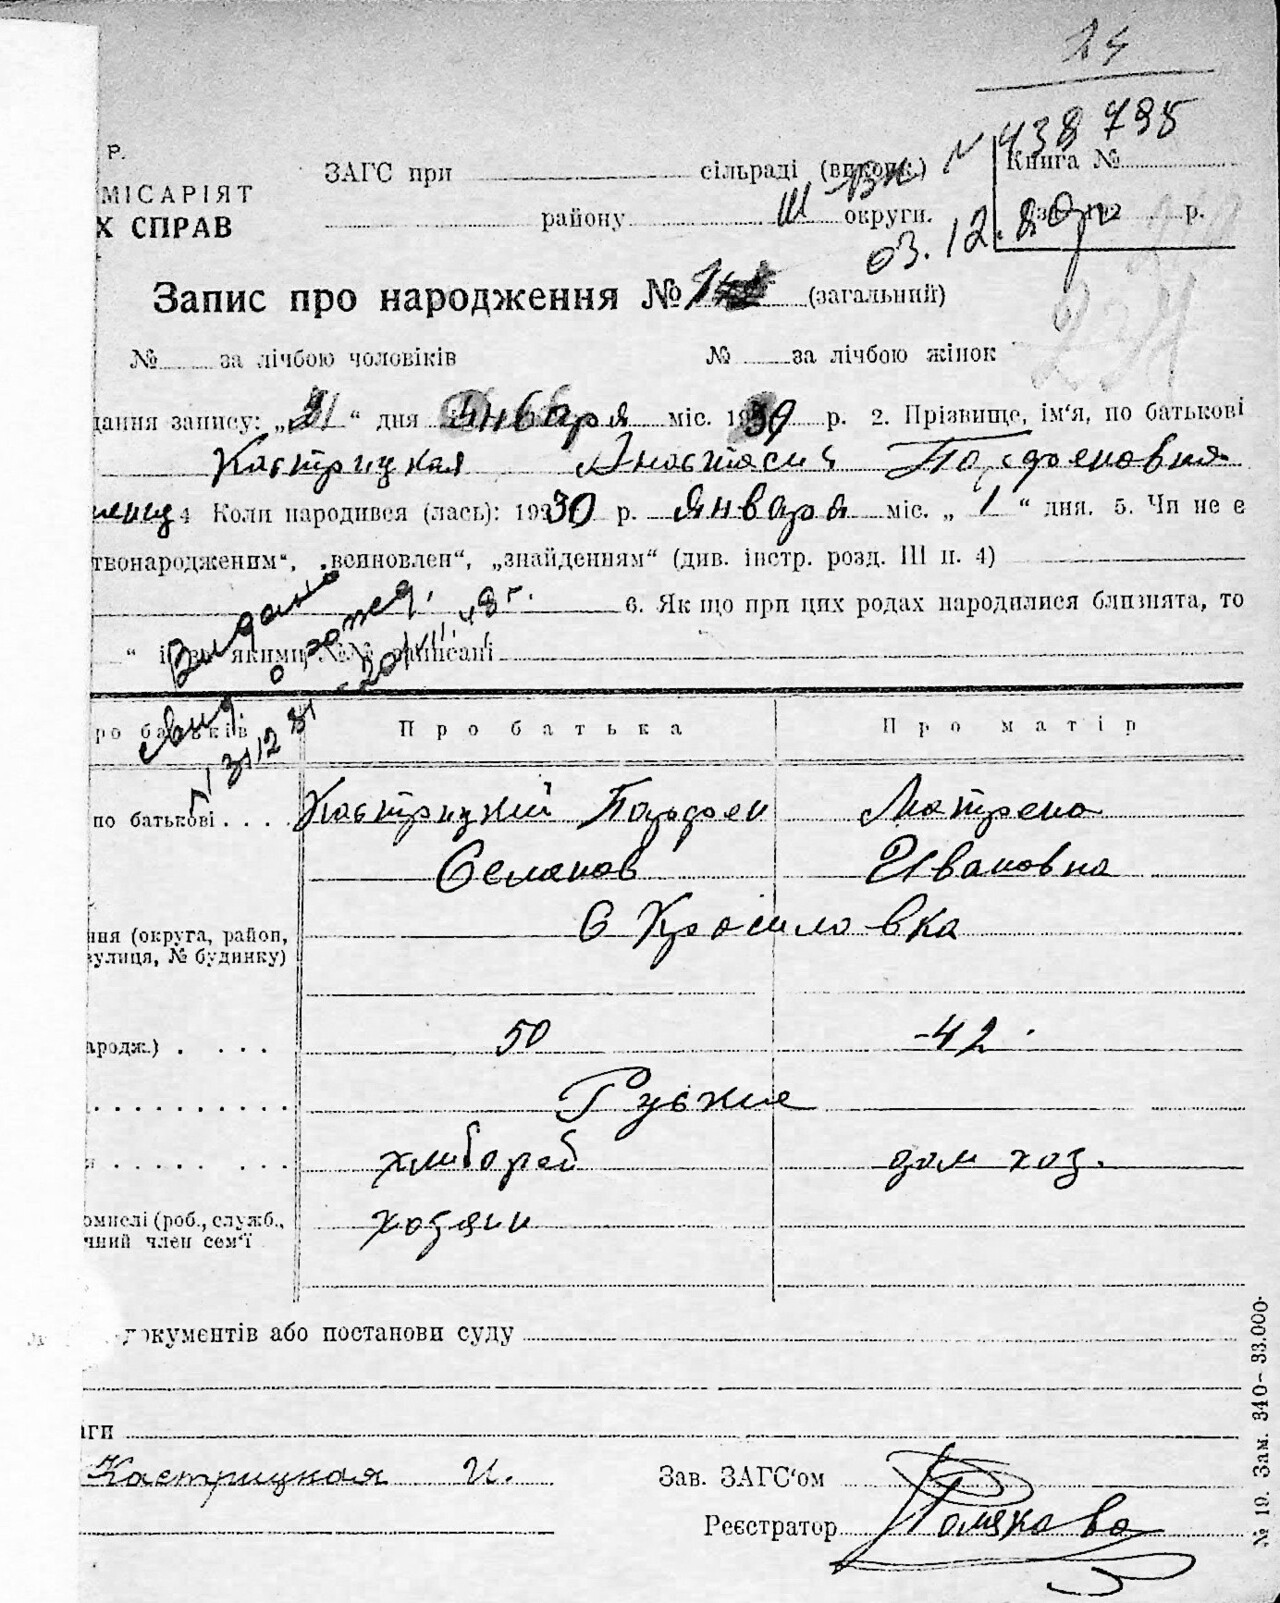 24
№ 438795
Р.
ЗАГС при сільраді (виконк.)
Книга №
МІСАРІЯТ
району III округи.
192 р.
Х СПРАВ
03.12.80р
Запис про народження № (загальний)
234
№ за лічбою чоловіків № за лічбою жінок
дання запису: „31“ дня января міс. 1930 р. 2. Прізвище, ім‘я, по батькові
Кастрицкая Анастасия Парфеновна
4 Коли народився (лась): 1930 р. января міс. „1“ дня. 5. Чи не є
твонародженим“, „всиновлен“, „знайденням“ (див. інстр. розд. III п. 4)
6. Якщо при цих родах народилися близнята, то
“ і за якими №№ записані
Выдано
свид о рожд.
20/VII. 48 г.
ро батьків Про батька Про матір
по батькові Кастрицкий Парфен Матрена
Семенов Ивановна
ння (округа, район, С Красиловка
вулиця, № будинку)
ародж.) 50 42
Руские
хлибороб дом хоз.
омислі (роб., служб., хозяин
чний член сем‘ї
документів або постанови суду
аги
Кастрицкая И. Зав. ЗАГС‘ом
Реєстратор
№ 19. Зам. 340— 33.000.